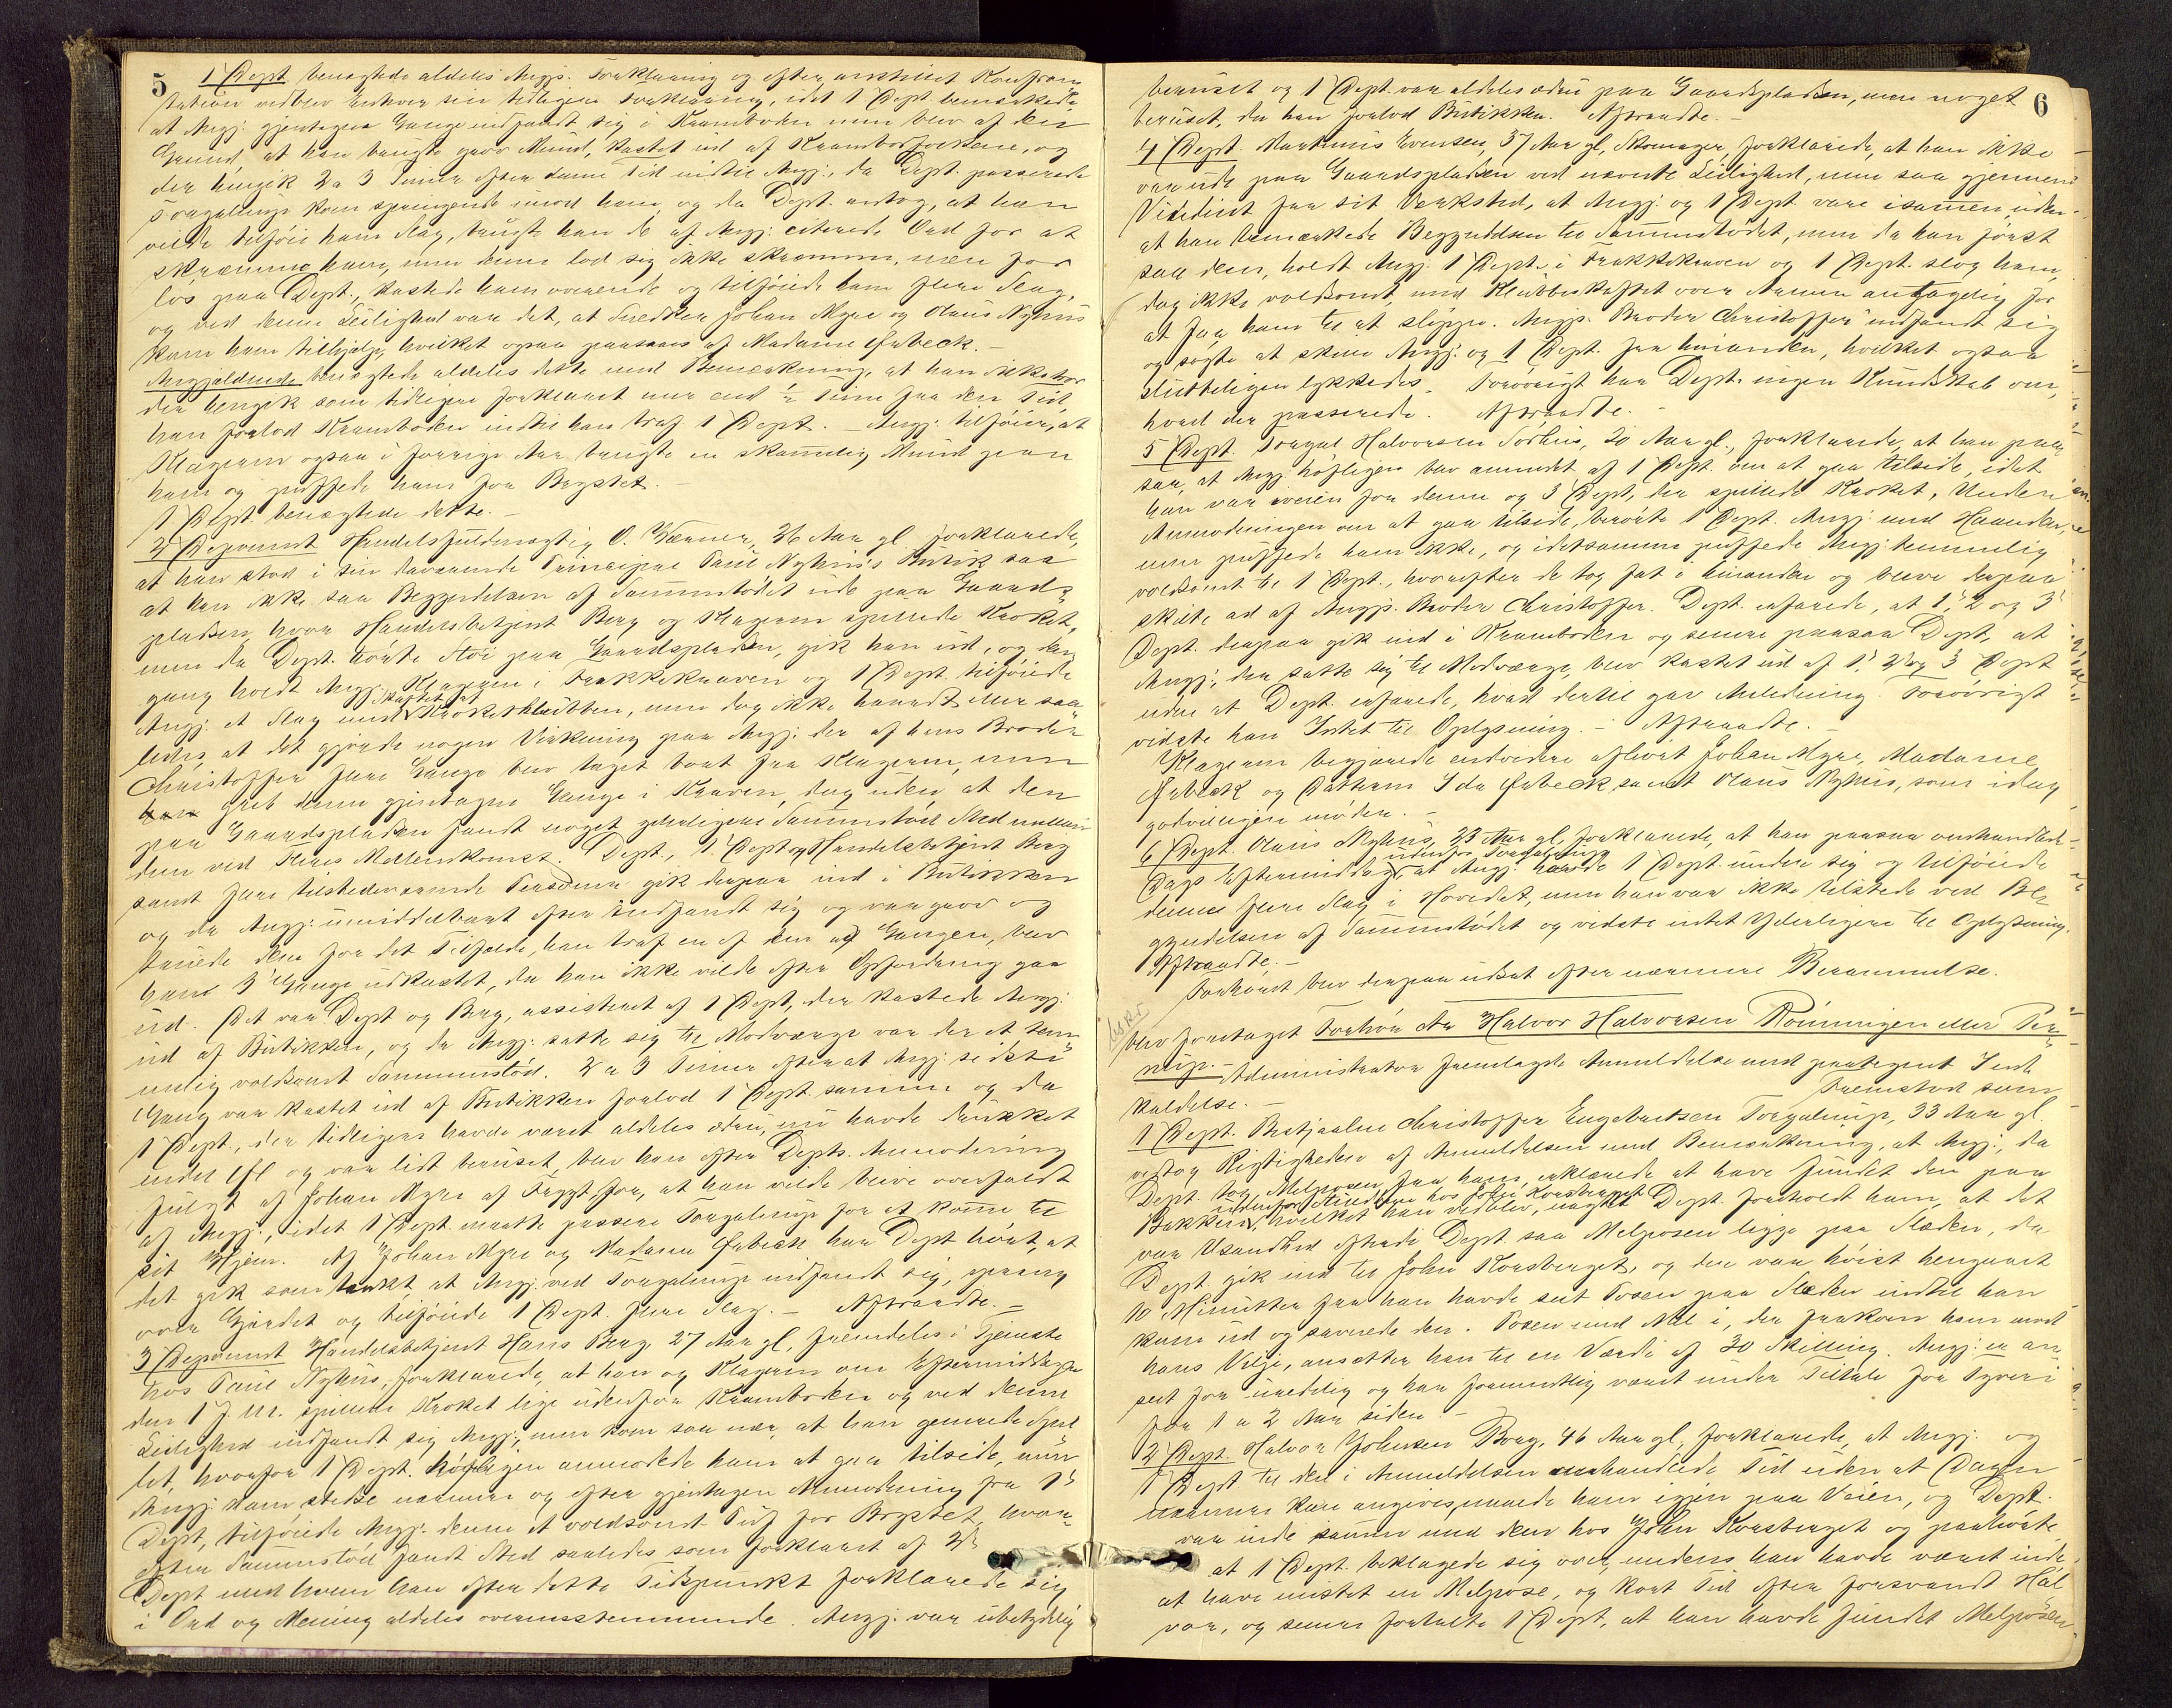 5
1 Dept. benægtede aldeles Angjs. Forklaring og efter anstillet Konfron-
tation vedblev Enhver sin tidligere Forklaring, idet 1 Dept. bemærkede,
at Angj. gjentagne Gange indfandt sig i Kramboden men blev af den
Grund, at han brugte grov Mund, kastet ud af Krambodfolkene, og
der hengik 2 a 3 Timer efter denne Tid indtil Angj., da Dept. passerede
Torgalmup kom springende imod ham og da Dept. antog, at han
vilde tilføie ham Slag, brugte han de af Angj. citerede Ord for at
skræmme ham, men denne lod sig ikke skræmme, men for
løs paa Dept., kastede ham overende og tilføiede ham flere Slag,
og ved denne Leilighed var det, at Snedker Johan Myre og Olaus Nyhus
kom ham tilhjælp, hvilket ogsaa paasaaes af Madame Ørbeck.-
Angjældende benægtede aldeles dette med Bemærkning, at han ikke tror
der hengik som tidligere forklaret mer end ½ Time fra den Tid,
han forlod Kramboden indtil han traf 1 Dept. - Angj. tilføier, at
Klageren ogsaa i forrige Aar brugte en skammelig Mund paa
ham og puffede ham for Brystet.-
1 Dept. benægtede dette.-
2 Deponent Handelsfuldmægtig O. Wærner, 26 Aar gl. forklarede,
at han stod i sin daværende Principal Paul Nyhus's Butik saa
at han ikke saa Begyndelsen af Sammenstødet ude paa Gaards-
pladsen, hvor Handelsbetjent Berg og Klageren spillede Kroket,
men da Dept. hørte Støi paa Gaardspladsen, gik han ud, og den
gang holdt Angj. Klageren i Frakkekraven og 1 Dept. tilføiede
Angj. et Slag med skaftet paa Kroketklubben, men dog ikke haardt eller saa-
ledes, at det gjorde nogen Virkning paa Angj. der af hans Broder
Christoffer flere Gange blev taget bort fra Klageren, men
han greb denne gjentagne Gange i Kraven, dog uden at der
paa Gaardspladsen fandt noget yderligere Sammenstød Sted mellem
dem ved Fleres Mellemkomst. Dept., 1 Dept og Handelsbetjent Berg
samt flere tilstedeværende Personer gik derpaa ind i Butikken
og da Angj. umiddelbart efter indfandt sig og var grov og
truede dem for det Tilfælde, han traf en af dem ad Gangen, blev
han 3 Gange udkastet, da han ikke vilde efter Opfordring gaa
ud. Det var Dept og Berg, assisteret af 1 Dept, der kastede Angj.
ud af Butikken, og da Angj. satte sig til Modværge var der et tem-
melig voldsomt Sammenstød. 2 a 3 Timer efter at Angj. sidste
Gang var kastet ud af Butikken forlod 1 Dept. samme og da
1 Dept., der tidligere havde været aldeles ædru, nu havde drukket
endel Øl og var lidt beruset, blev han efter Depts. Anmodning
fulgt af Johan Myre af Frygt for, at han vilde blive overfaldt
af Angj., idet 1 Dept. maatte passere Torgalmup for at komme til
sit Hjem. Af Johan Myre og Madame Ørbeck har Dept hørt, at
det gik som tænkt at Angj. ved Torgalmup indfandt sig, sprang
over Gjærdet og tilføiede 1 Dept. flere Slag. - Aftraadte.-
3 Deponent Handelsbetjent Hans Berg, 27 Aar gl, fremdeles i Tjeneste
hos Paul Nyhus, forklarede, at han og Klageren om Eftermiddagen
den 1 f. M. spillede Kroket lige udenfor Kramboden og ved denne
Leilighed indfandt sig Angj., men kom saa nær, at han generede Spil-
let, hvorfor 1 Dept. høfligen anmodede ham at gaa tilside, men
Angj. kom stedse nærmere og efter gjentagen Anmodning fra 1ste
Dept, tilføiede Angj. denne et voldsomt Puf for Brystet, hvor-
efter Sammenstød fandt Sted saaledes som forklaret af 2den
Dept med hvem han efter dette Tidspunkt forklarede sig
i Ord og Mening aldeles overensstemmende. Angj. var ubetydelig
6
beruset og 1 Dept. var aldeles ædru paa Gaardspladsen, men noget
beruset, da han forlod Butikken. Aftraadte.-
4 Dept. Martinus Evensen, 37 Aar gl, Skomager, forklarede, at han ikke
var ude paa Gaardspladsen ved nævnte Leilighed, men saa gjennem
Vinduet fra sit Verksted, at Angj. og 1 Dept vare isammen uden-
at han bemærkede Begyndelsen til Sammenstødet, men da han først
saa dem, holdt Angj. 1 Dept. i Frakkekraven og 1 Dept. slog ham,
dog ikke voldsomt, med Klubbeskaftet over Armen antagelig for
at faa ham til at slippe. Angjs. Broder Christoffer indfandt sig
og søgte at skille Angj. og 1 Dept. fra hinanden, hvilket ogsaa
sluttelligen lykkedes. Forøvrigt har Dept. ingen Kundskab om,
hvad der passerede. Aftraadte.-
5 Dept. Torgal Halvorsen Sørhus, 20 Aar gl., forklarede, at han paa-
saa, at Angj. høfligen blev anmodet af 1 Dept. om at gaa tilside, idet
han var iveien for denne og 3 Dept, der spillede Kroket. Under
Anmodningen om at gaa tilside, berørte 1 Dept. Angj. med Haanden,
men puffede ham ikke, og idetsamme puffede Angj. temmelig
voldsomt til 1 Dept., hvorefter de tog fat i hinanden og bleve derpaa
skilte ad af Angjs. Broder Christoffer. Dept. erfarede, at 1, 2 og 3
Dept. derpaa gik ind i Kramboden og senere paasaa Dept, at
Angj., der satte sig til Modværge, blev kastet ud af 1, 2 og 3 Dept
uden at Dept. erfarede, hvad dertil gav Anledning. Forøvrigt
vidste han Intet til Oplysning. - Aftraadte.-
Klageren begjærede endvidere afhørt Johan Myre, Madame
Ørbeck og Datteren Ida Ørbeck, samt Olaus Nyhus, som idag
godvilligen møder.-
6 Dept. Olaus Nyhus, 23 Aar gl, forklarede, at han paasaa omhandlede
Dags Eftermiddag udenfor Torgalmup at Angj. havde 1 Dept. under sig og tilføiede
denne flere Slag i Hovedet, men han var ikke tilstede ved Be-
gyndelsen af Sammenstødet og vidste intet Yderligere til Oplysning.
Aftraadte.-
Forhøret blev derpaa udsat efter nærmere Berammelse.
blev foretaget Forhør ctr Halvor Halvorsen Rønningen eller Tor-
mup.- Administrator fremlagde Anmeldelse med paategnet Ind-
kaldelse.- Fremstod som
1 Dept. Bestjaalne Christoffer Engebretsen Torgalmup, 33 Aar gl
vedtog Rigtigheden af Anmeldelsen med Bemærkning, at Angj., da
Dept. tog Melposen fra ham, erklærede at have fundet den paa
Bakken, udenfor Stuedøren hos John Korsberget hvilket han vedblev, uagtet Dept. foreholdt ham, at det
var Usandhed fordi Dept. saa Melposen ligge paa Slæden, da
Dept. gik ind til John Korsberget, og der var høist hengaaet
10 Minutter fra han havde seet Posen paa Slæden indtil han
kom ud og savnede den. Posen med Mel i, der frakom ham mod
hans Vilje, ansætter han til en Værdi af 30 Skilling. Angj. er an-
seet for uredelig og har formentlig været under Tiltale for Tyveri
for 1 a 2 Aar siden.-
2 Dept. Halvor Johnsen Borg, 46 Aar gl, forklarede, at Angj. og
1 Dept til den i Anmeldelsen omhandlede Tid uden at Dagen
nærmere kan angives, naaede ham igjen paa Veien, og Dept.
var inde sammen med dem hos John Korsberget og paahørte,
at 1 Dept. beklagede sig over, medens han havde været inde,
at have mistet en Melpose, og kort Tid efter forsvandt Hal-
vor, og senere fortalte 1 Dept, at han havde fundet Melposen